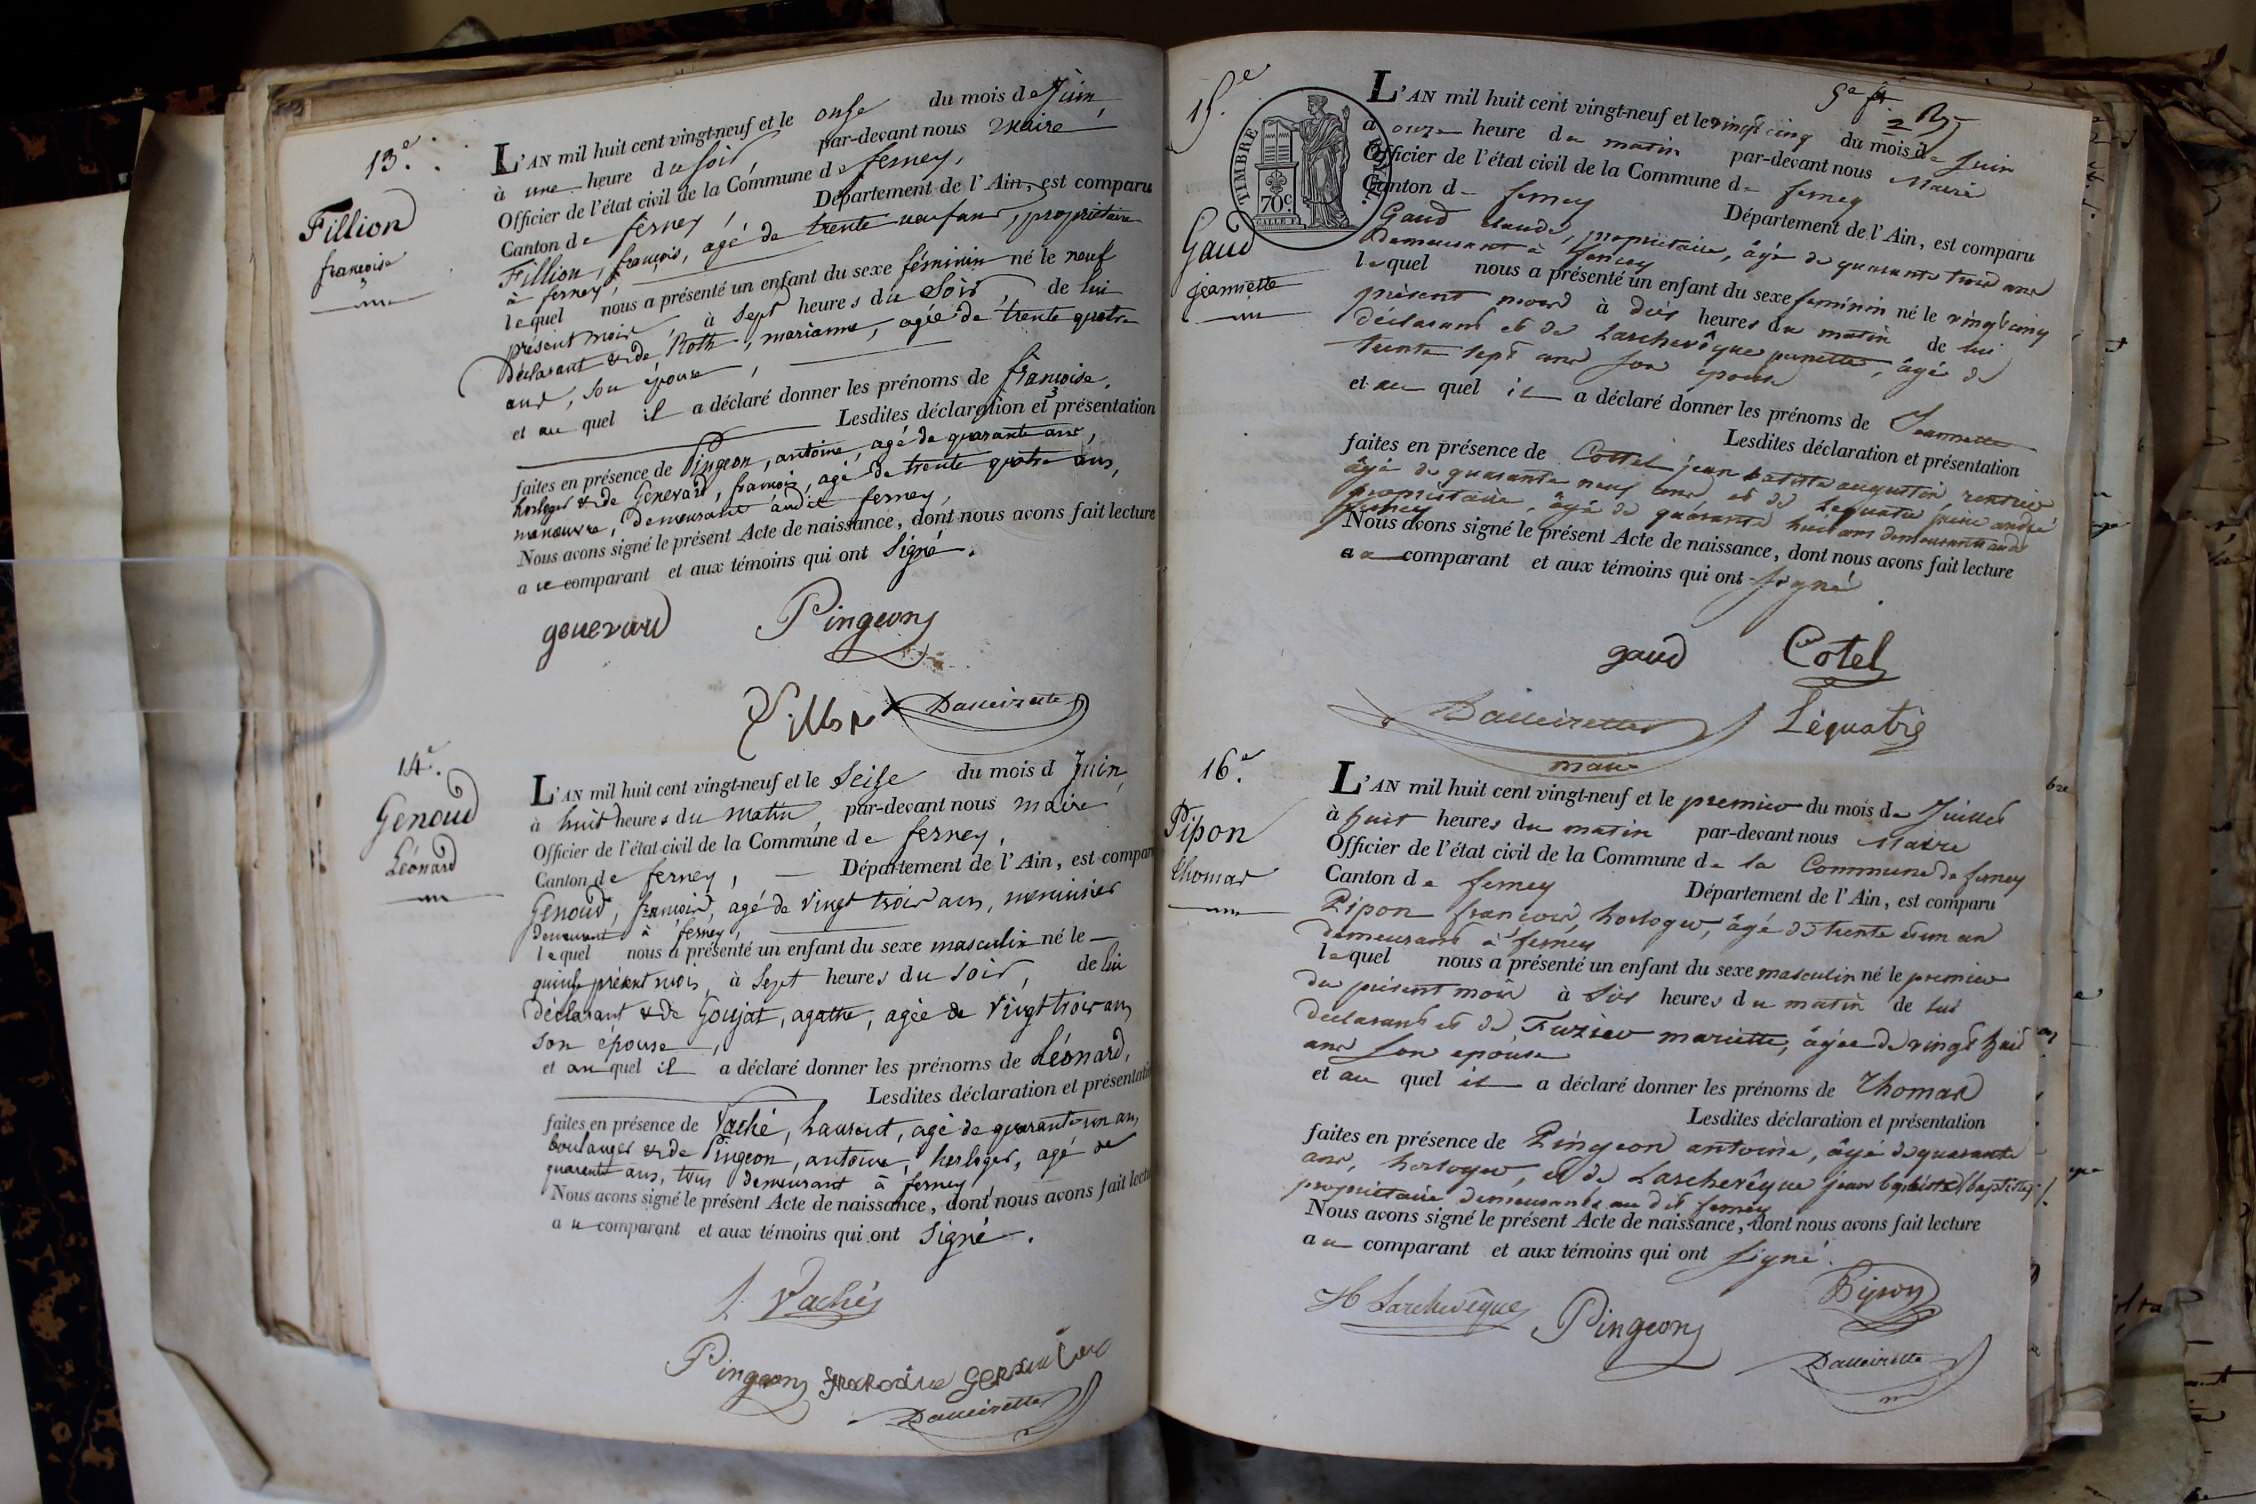 13e.
Fillion
françoise
L'AN mil huit cent vingt-neuf et le onse du mois de Juin,
à une heure du soir, par-devant nous Maire
Officier de l'état civil de la Commune de ferney,
Canton de ferney, Département de l'Ain, est comparu
Fillion, françois, agé de trente neuf ans, propriétaire
à ferney,
lequel nous a présenté un enfant du sexe féminin né le neuf
présent mois, à sept heures du soir, de lui
déclarant & de Roth, marianne, agée de trente quatre
ans, son épouse,
et au quel il a déclaré donner les prénoms de françoise.
Lesdites déclaration et présentation
faites en présence de Pingeon, antoine, agé de quarante ans,
horloger & de Genevard, françois, agé de trente quatre ans,
manœuvre, demeurant audit ferney,
Nous avons signé le présent Acte de naissance, dont nous avons fait lecture
au comparant et aux témoins qui ont signé.
genevard Pingeon
Fillion Dalleizette
14e.
Genoud
Léonard
L'AN mil huit cent vingt-neuf et le seise du mois d Juin,
à huit heures du matin, par-devant nous maire
Officier de l'état civil de la Commune de ferney,
Canton de ferney, Département de l'Ain, est compar
Genoud, françois, agé de vingt trois ans, menuisier
demeurant à ferney,
lequel nous a présenté un enfant du sexe masculin né le
quinse présent mois, à sept heures du soir, de lui
déclarant & de Goujat, agathe, agée de vingt trois ans
son épouse,
et au quel il a déclaré donner les prénoms de Léonard,
Lesdites déclaration et présentati
faites en présence de Vaché, Laurent, agé de quarante un an,
boulanger & de Pingeon, antoine, horloger, agé de
quarente ans, tous demeurant à ferney,
Nous avons signé le présent Acte de naissance, dont nous avons fait lectu
au comparant et aux témoins qui ont signé.
L. Vaché
Pingeon
Dalleizette
15e.
TIMBRE ROYAL.
70c.
Gaud
Jeannette
L'AN mil huit cent vingt-neuf et le vingt cinq du mois de Juin
à onze heure du matin par-devant nous Maire
Officier de l'état civil de la Commune de ferney
Canton de ferney Département de l'Ain, est comparu
Gaud claude, propriétaire, âgé de quarante trois ans
Demeurant à ferney
lequel nous a présenté un enfant du sexe feminin né le vingt cinq
présent mois à dix heures du matin de lui
déclarant et de Larchevêque pernette, âgé de
trente sept ans son epouse
et au quel il a déclaré donner les prénoms de Jeannette
Lesdites déclaration et présentation
faites en présence de Cottel jean batiste augustin, rentier
âgé de quarante neuf ans et de Lequatre pierre andré
propriétaire, âgé de quarante huit ans demeurants audit
ferney
Nous avons signé le présent Acte de naissance, dont nous avons fait lecture
au comparant et aux témoins qui ont signé
gaud Cotel
Dalleizette Léquatre
maire
16e.
Pipon
Thomas
L'AN mil huit cent vingt-neuf et le premier du mois de Juillet
à huit heures du matin par-devant nous Maire
Officier de l'état civil de la Commune de la Commune de ferney
Canton de ferney Département de l'Ain, est comparu
Pipon françois, horloger, âgé de trente et un an
demeurant à ferney
lequel nous a présenté un enfant du sexe masculin né le premier
du présent mois à six heures du matin de lui
declarant et de Fuzier mariette, âgée de vingt huit
ans son epouse
et au quel il a déclaré donner les prénoms de Thomas
Lesdites déclaration et présentation
faites en présence de Pingeon antoine, âgé de quarante
ans, horloger, et de Larchevêque jean
propriétaire demeurants au dit ferney
Nous avons signé le présent Acte de naissance, dont nous avons fait lecture
au comparant et aux témoins qui ont signé.
Larchevêque Pingeon Pipon
Dalleizette